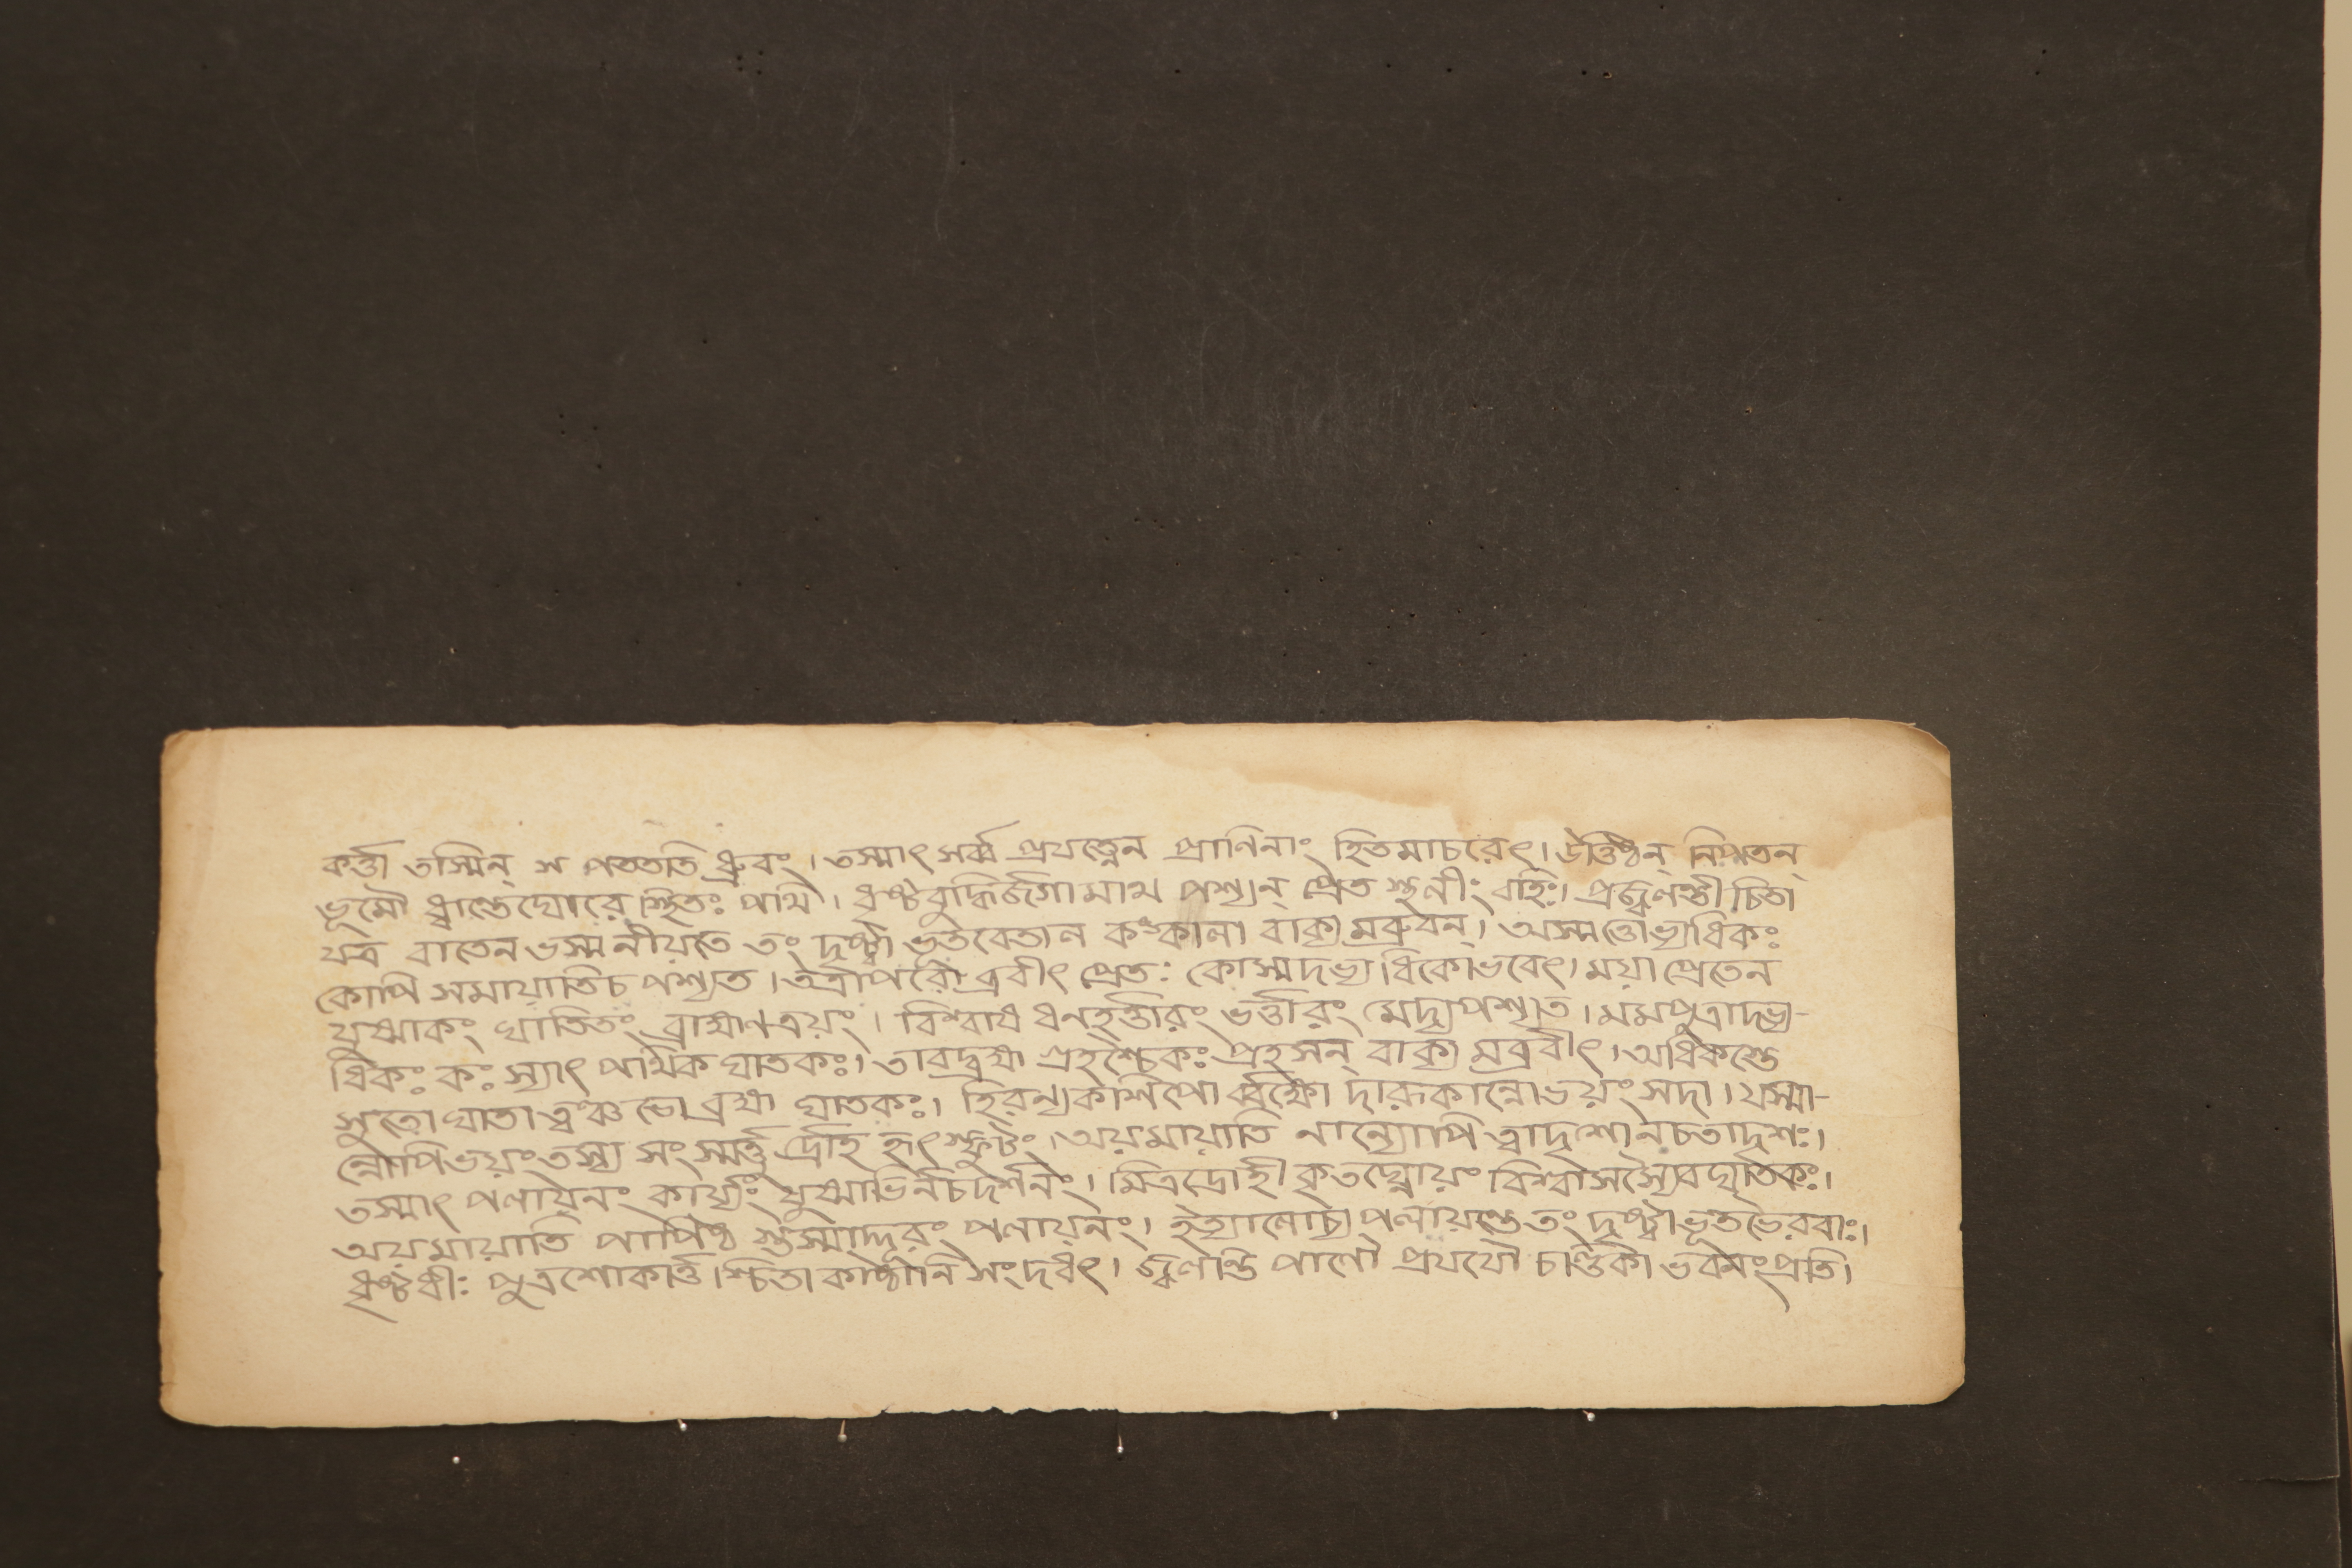 কর্ত্তা তস্মিন্ স পততিতি ধ্রুবং। তস্মাৎ সর্ব্ব প্রযত্নেন প্রাণিনাং হিতমাচরেৎ। উত্তিষ্ঠন্ নিপতন্
ভূমৌ ধ্বান্তেঘোরে স্থিতঃ পথি। ধৃষ্টবুদ্ধির্জগামাথ পশ্যন্ প্রেত স্থলীং বহিঃ। প্রজ্বলন্তী চিতা
যত্র বাতেন ভস্মনীয়তে তং দৃষ্ট্বা ভূতবেতাল কংকালা বাক্য মব্রুবন্। অস্মত্তোভ্যধিকঃ
কোপি সমায়াতিচ পশ্যত। তত্রাপরো ব্রবীৎ প্রেতঃ কোস্মদভ্য ধিকোভবেৎ। ময়া প্রেতেন
যুষ্মাকং ঘাতিতং ব্রাহ্মণত্রয়ং। বিশ্বাষ ধনহর্ত্তারং ভর্ত্তারং মেদ্যপশ্যত। মমপুত্রাদভ্য-
ধিকঃ কঃ স্যাৎ পথিক ঘাতকঃ। তাবদ্ব্রহ্ম গ্রহশ্চৈকঃ প্রহসন্ বাক্য মব্রবীৎ। অধিকস্তে
সুতো ঘাতা ত্বংঞ্চভো ব্রহ্ম ঘাতকঃ। হিরন্যকশিপো র্ব্বক্ষো দারকান্নোভয়ং সদা। যস্মা-
ন্নোপিভয়ং তস্য সং স্মর্ত্তু র্দ্রোহি হৃৎ স্ফুটং। অয়মায়াতি নান্যোপি ত্বাদৃশোনচতাদৃশঃ।
তস্মাৎ পলায়নং কার্য্যং যুষ্মাভির্নচদর্শনং। মিত্রদ্রোহী কৃতঘ্নোয়ং বিশ্বাসস্যৈবঘাতকঃ।
অয়মায়াতি পাপিষ্ঠ স্তস্মাদ্দূরং পলায়নং। ইত্যালোচ্য পলায়ন্তে তং দৃষ্ট্বা ভূতভৈরবাঃ।
ধৃষ্টধীঃ পুত্রশোকার্ত্ত শ্চিতা কাষ্ঠানি সংদধৎ। জ্বলন্তি পাণৌ প্রযযৌ চণ্ডিকা ভবনংপ্রতি।